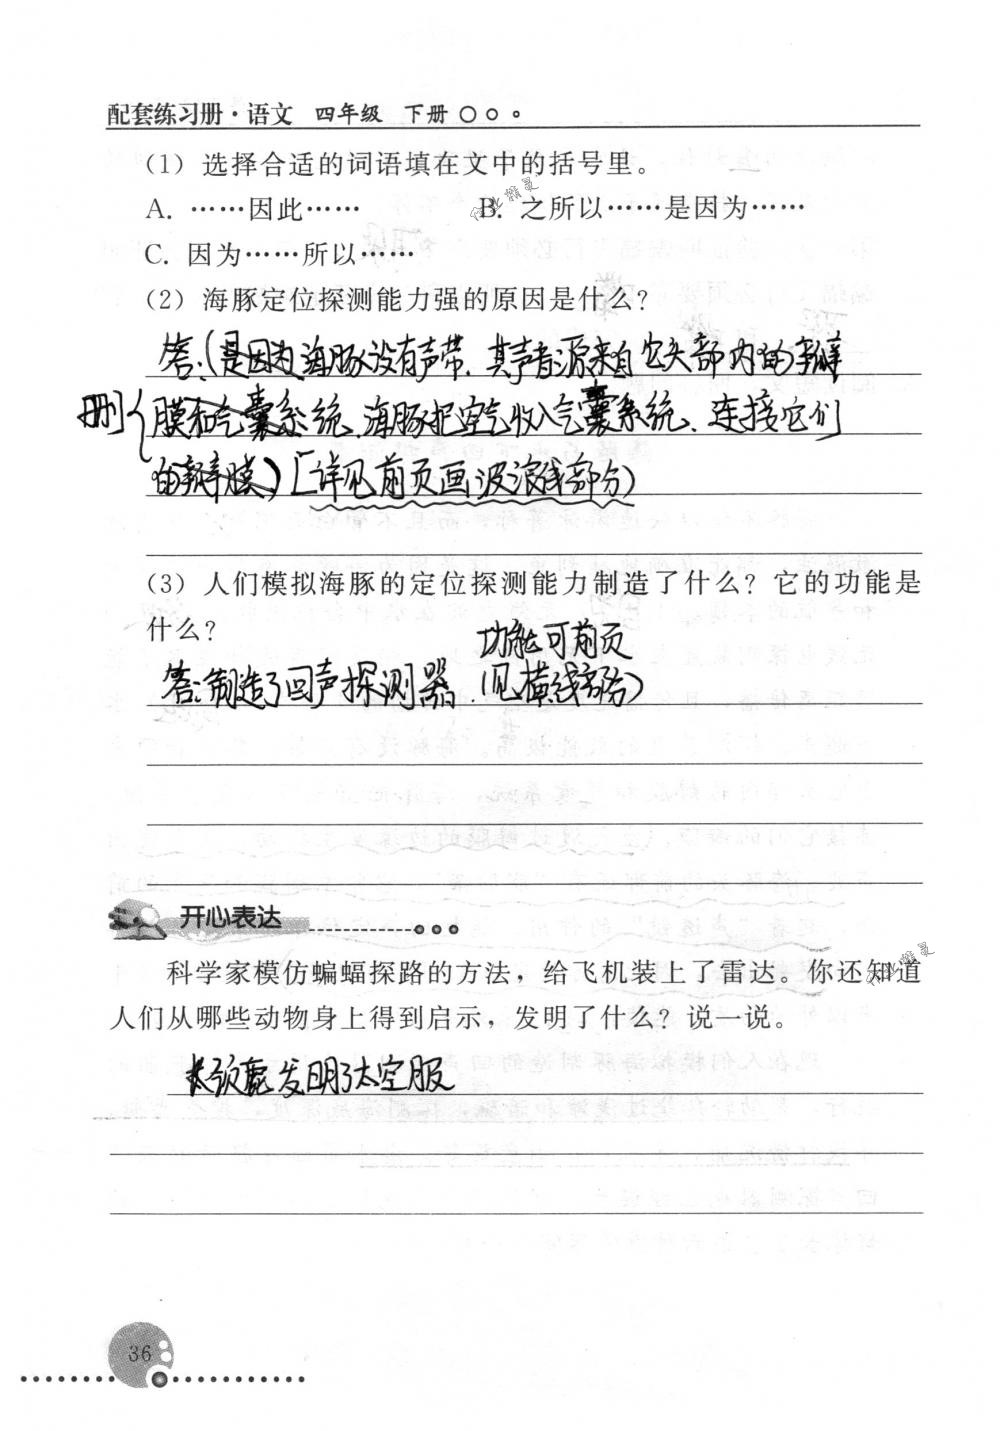 配套练习册·语文 四年级 下册
(1) 选择合适的词语填在文中的括号里。
A. ……因此…… B. 之所以……是因为……
C. 因为……所以……
(2) 海豚定位探测能力强的原因是什么?
答:(是因为海豚没有声带,其声音源来自它头部内的瓣
删{膜和气囊系统,海豚把空气收入气囊系统、连接它们
的瓣膜)[详见前页画波浪线部分)
(3) 人们模拟海豚的定位探测能力制造了什么? 它的功能是
什么?
功能可前页
答:制造了回声探测器.(见横线部分)
开心表达
科学家模仿蝙蝠探路的方法,给飞机装上了雷达。你还知道
人们从哪些动物身上得到启示,发明了什么? 说一说。
长颈鹿发明了太空服
36